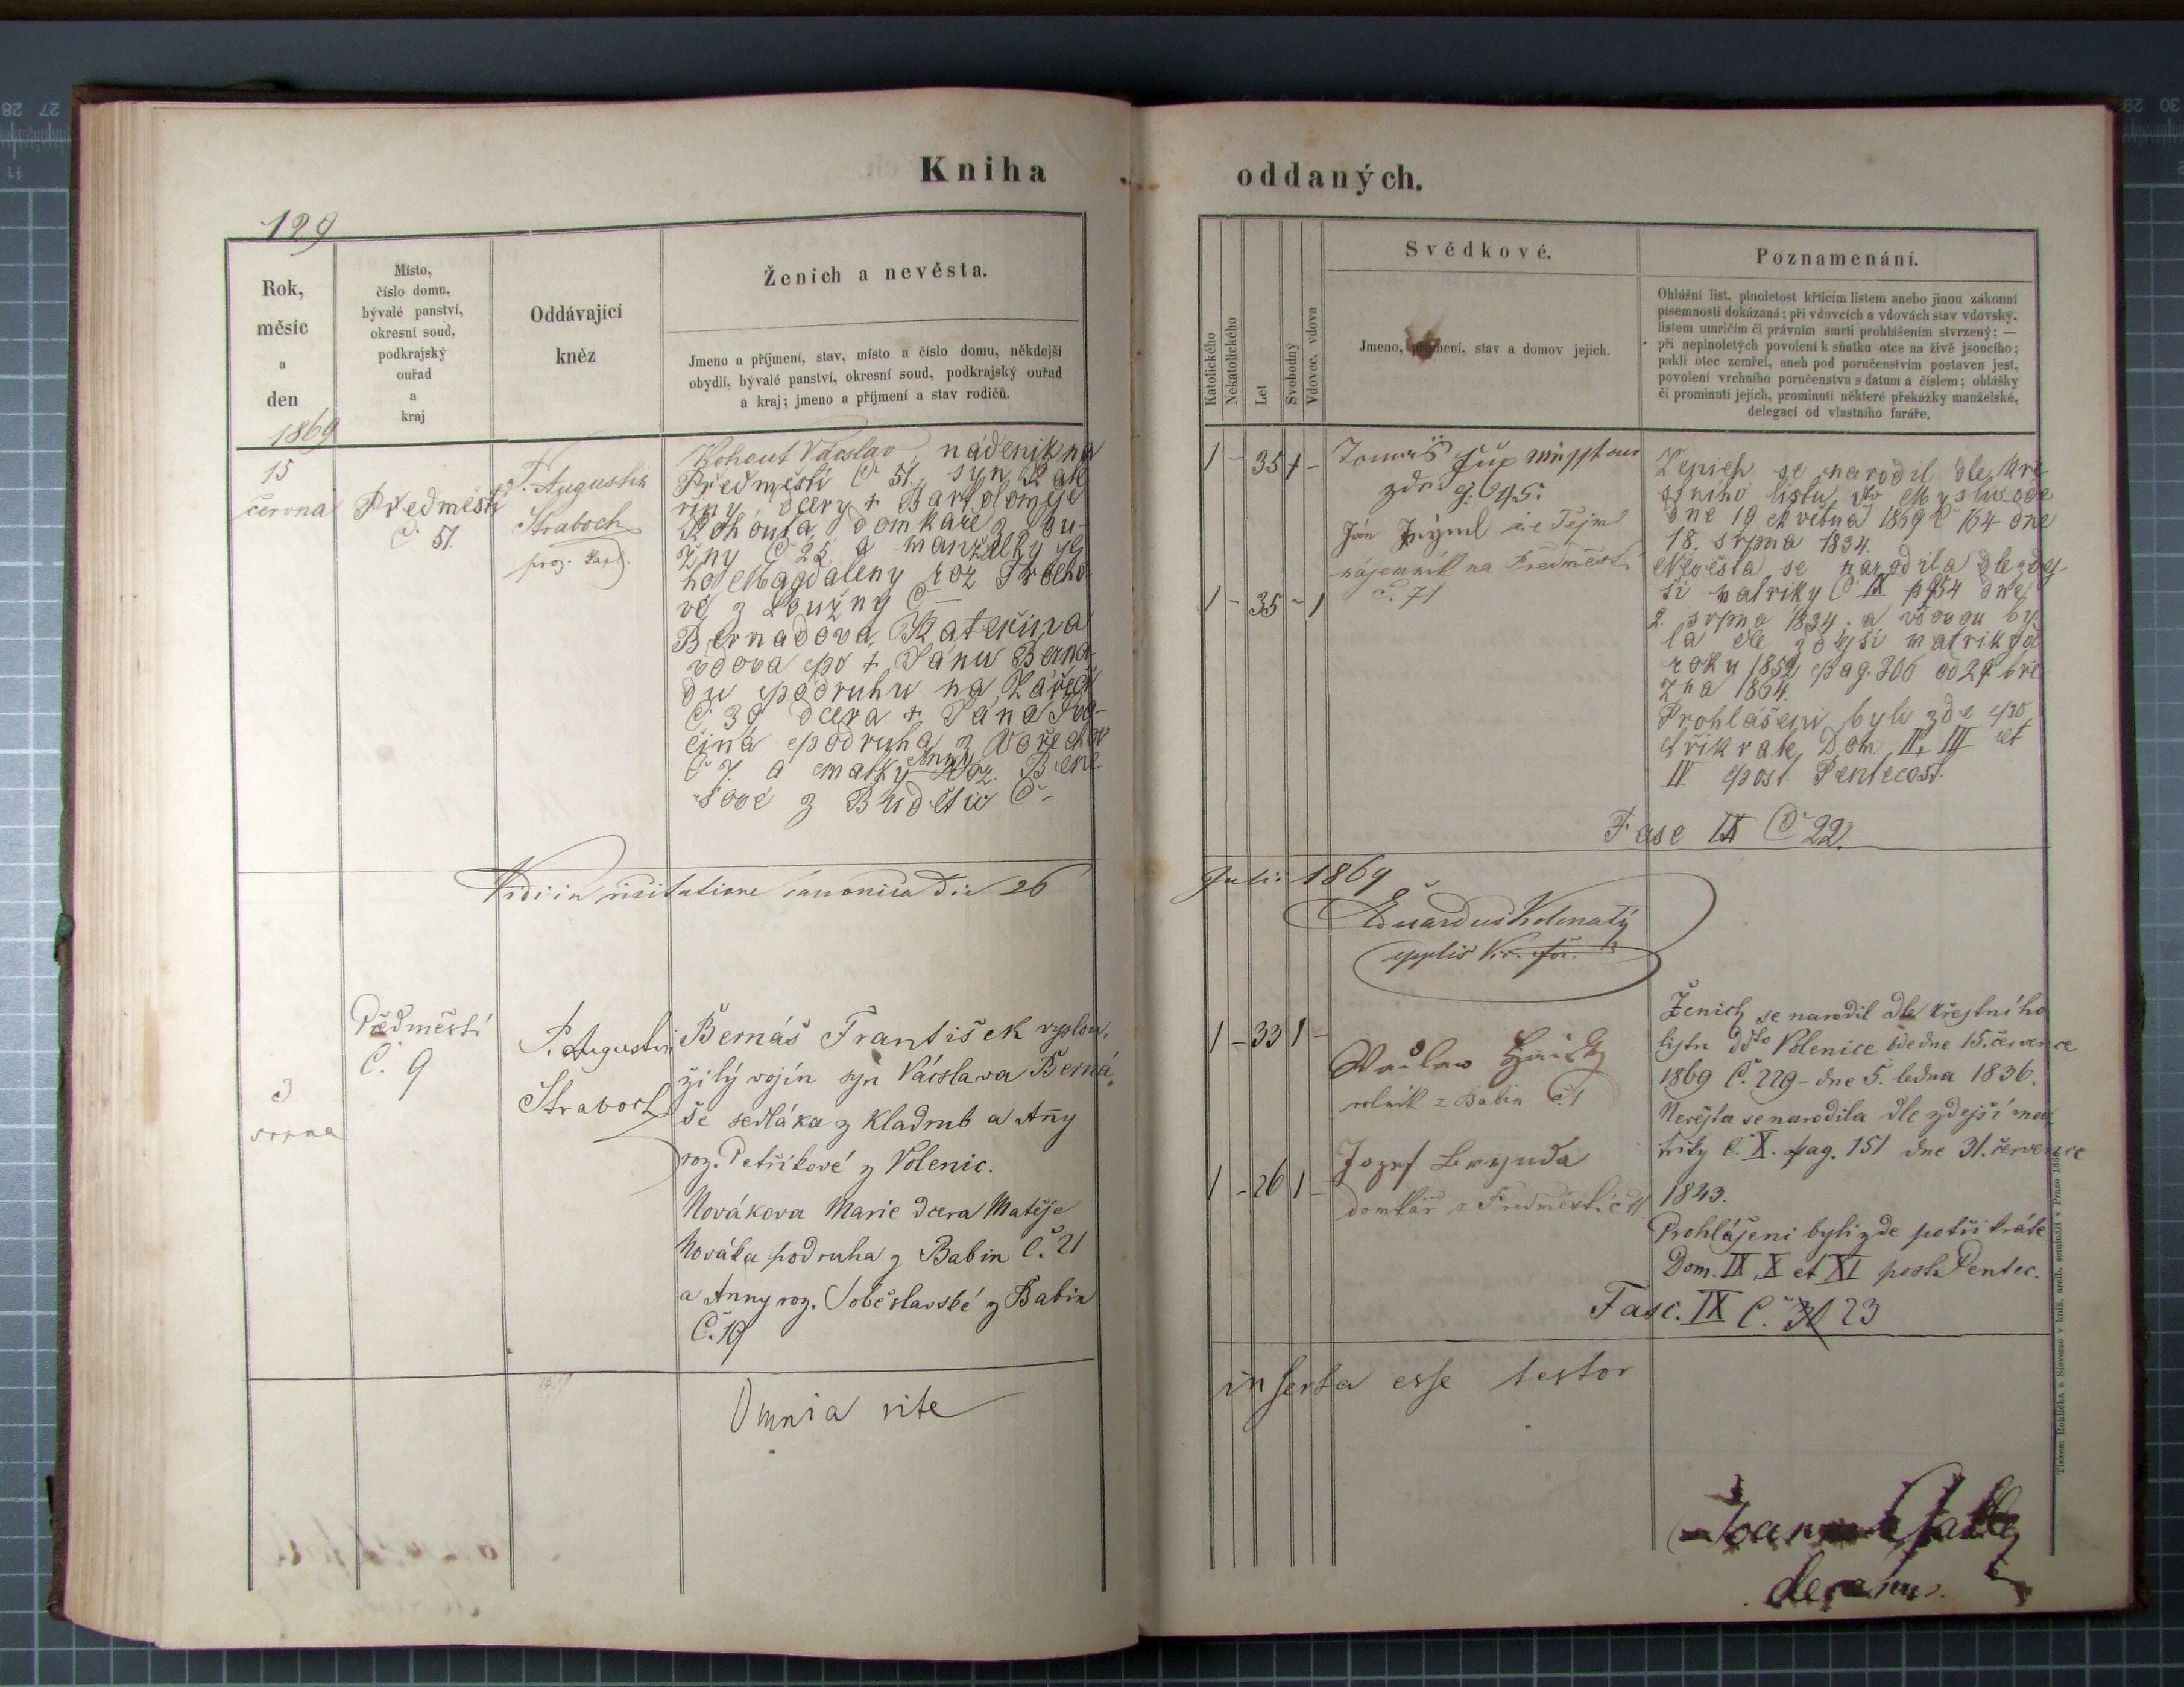 Kniha oddaných.
129
Rok,
měsíc
a
den
1869
Místo,
číslo domu,
bývalé panství,
okresní soud,
podkrajský
ouřad
a
kraj
Oddávající
kněz
Ženich a nevěsta.
Jmeno a příjmení, stav, místo a číslo domu, někdejší
obydlí, bývalé panství, okresní soud, podkrajský ouřad
a kraj; jmeno a příjmení a stav rodičů.
Katolického
Nekatolického
Let
Svobodný
Vdovec, vdova
Svědkové.
Jmeno, příjmení, stav a domov jejich.
Poznamenání.
Ohlášní list, plnoletost křticím listem anebo jinou zákonní
písemností dokázaná; při vdovcích a vdovách stav vdovský,
listem umrlčím či právním smrti prohlášením stvrzený; —
při neplnoletých povolení k sňatku otce na živě jsoucího;
pakli otec zemřel, aneb pod poručenstvím postaven jest,
povolení vrchního poručenstva s datum a číslem; ohlášky
či prominutí jejich, prominutí některé překážky manželské,
delegací od vlastního faráře.
15
června
Předměstí
Č. 51.
P. Augustin
Straboch
Kohout Václav, nádeník na
Předměstí Č 51., syn Kate
řiny, dcery + Bartoloměje
Kohouta, domkáře z Lou-
žny Č 25 a manželky je
ho Magdaleny roz
vé z Loužny Č —
Bernadova Kateřina
vdova po + Janu Berna-
du podruhu na
Č 39 dcera + Jana
podruha z
Č 7. a matky Anny roz. Bene
šové z Budětic Č –
1 – 35 1 –
1 – 35 – 1
Tomáš
zde č. 45.
Ján Tejml
nájemník na Předměstí
č. 71
Ženich se narodil dle kře
stního listu dto
dne 19 května 1869 Č 164 dne
18. srpna 1834.
Nevěsta se narodila dle zdej-
ší matriky Č IX p 254 dne
2. srpna 1834. a vdovou by
la dle zdejší matriky od
roku 1852 pag. 306 od 29 bře
zna 1864.
Prohlášeni byli zde po
třikrate Dom II, III et
IV post Pentecost.
Fasc IX Č 22.
Vidi in visitatione canonica die 26
Julii 1869
Eduardus
Předměstí
Č. 9
3
srpna
P. Augustin
Straboch
Bernáš František vyslou-
žilý vojín syn Václava Berná„
še sedláka z Kladrub a Anny
roz. Petříkové z Volenic.
Novákova Marie dcera Matěje
Nováka podruha z Babin č. 21
a Anny roz. Soběslavské z Babin
Č. 19
1 – 33 1 –
1 – 26 1 –
Václav
rolník z Babin č. 1
Jozef
domkář z Předměstí č 11
Ženich se narodil dle křestního
listu ddto Volenice ode dne 15. července
1869 Č. 229 – dne 5. ledna 1836.
Nevěsta se narodila dle zdejší ma
triky č. X. pag. 151 dne 31. července
1843.
Prohlášeni byli zde po tři kráte
Dom. IX, X et XI post Pentec.
Fasc. IX Č. 23
Omnia rite
inserta esse testor
Tiskem Rohlíčka a Sieverse v kníž. arcib. semináři v Praze